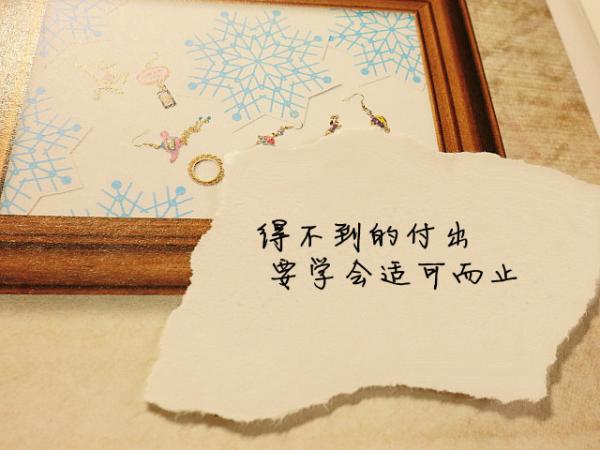 得不到的付出
要学会适可而止